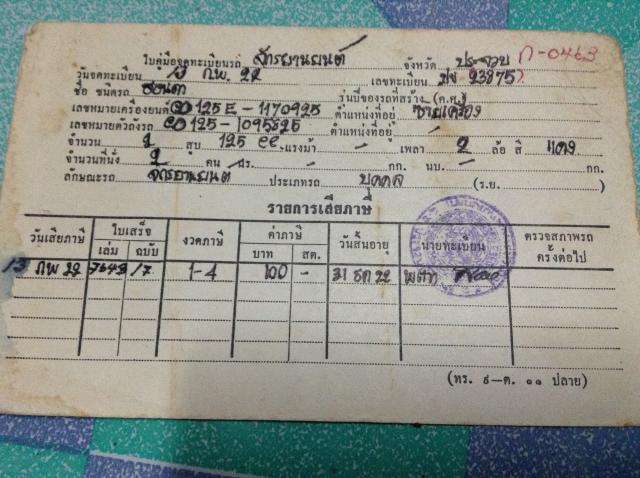 ใบคู่มือจดทะเบียนรถ จักรยานยนต์ จังหวัด ประจวบ ก-0463
วันจดทะเบียน กพ. 22 เลขทะเบียน ปข 23875
ชื่อ ชนิดรถ ฮอนดา รุ่นปีของรถที่สร้าง (ค.ศ.)
เลขหมายเครื่องยนต์ CD 125 E - 1170925 ตำแหน่งที่อยู่ ซ้ายเครื่อง
เลขหมายตัวถังรถ CD 125 - 1095825 ตำแหน่งที่อยู่
จำนวน 2 สูบ 125 cc แรงม้า เพลา 2 ล้อ สี แดง
จำนวนที่นั่ง 2 คน กก. นบ. กก.
ลักษณะรถ จักรยานยนต์ ประเภทรถ บุคคล (ร.ย. )
รายการเสียภาษี
วันเสียภาษี ใบเสร็จ เล่ม ฉบับ งวดภาษี ค่าภาษี บาท สต. วันสิ้นอายุ นายทะเบียน ตรวจสภาพรถครั้งต่อไป
13 กพ 22 7649 17 1-4 100 - 31 ธค 22 พตท
(ทร. ๕—ต. ๑๑ ปลาย)